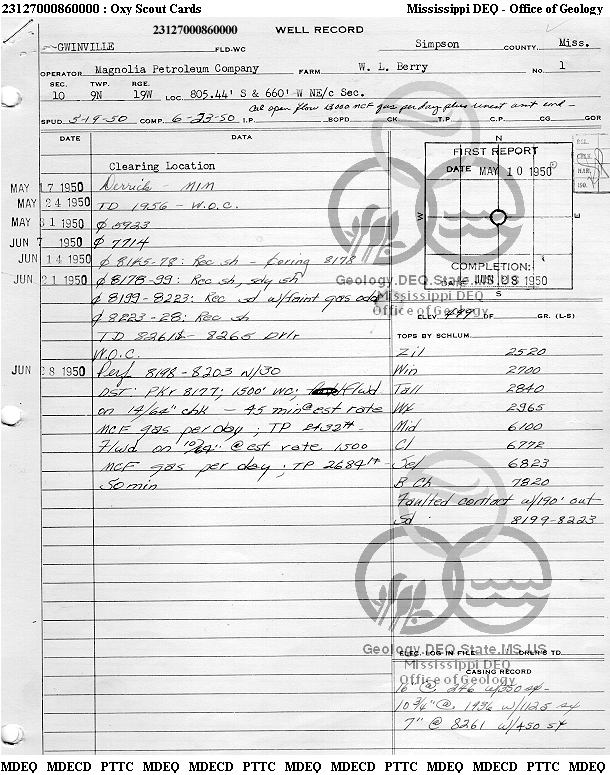 23127000860000 : Oxy Scout Cards Mississippi DEQ - Office of Geology
23127000860000 WELL RECORD
GWINVILLE FLD-WC Simpson COUNTY, Miss.
OPERATOR Magnolia Petroleum Company FARM W. L. Berry NO. 1
SEC. TWP. RGE.
10 9N 19W LOC. 805.44' S & 660' W NE/c Sec.
Cal open flow 13000 MCF gas per day plus
SPUD 5-19-50 COMP. 6-23-50 I.P. BOPD CK T.P. C.P. CG GOR
DATE DATA
Clearing Location
MAY 17 1950 Derrick - MIM
MAY 24 1950 TD 1956 - W.O.C.
MAY 31 1950 ϕ 5923
JUN 7 1950 ϕ 7714
JUN 14 1950 ϕ 8165-78: Rec sh - Coring 8178
JUN 21 1950 ϕ 8178-99: Rec sh, sdy sh
ϕ 8199-8223: Rec sd w/faint gas odor
ϕ 8223-28: Rec sh
TD 8261 8265 Drlr
W.O.C.
JUN 28 1950 Perf 8198-8203 w/30
DST: PKr 8177; 1500' WC; Flwd
on 14/64" chk - 45 min @ est rate
MCF gas per day; TP 2432#.
Flwd on 10/64" @ est rate 1500
MCF gas per day; TP 2684#
50 min
N
FIRST REPORT
DATE MAY 10 1950
W E
COMPLETION:
DATE JUN 28 1950
S
ELEV. DF. GR. (L-S)
TOPS BY SCHLUM.
Zil 2520
Win 2700
Tall 2840
Wx 2965
Mid 6100
Cl 6772
Sel 6823
B Ch 7820
Faulted contact w/190' out
Sd 8199-8223
ELEC. LOG IN FILE DRLR'S TD
CASING RECORD
16" @ 246 w/350 sx
10 3/4" @ 1936 w/1125 sx
7" @ 8261 w/450 sx
Geology.DEQ.State.MS.US
Mississippi DEQ
Office of Geology
Geology.DEQ.State.MS.US
Mississippi DEQ
Office of Geology
MDEQ MDECD PTTC MDEQ MDECD PTTC MDEQ MDECD PTTC MDEQ MDECD PTTC MDEQ